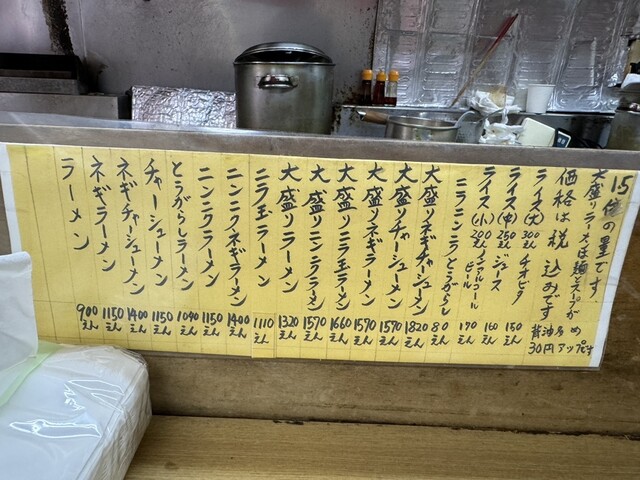 大盛りラーメンは麺とスープが
15倍の量です
価格は税込みです
醤油多め
30円アップです
ライス(大)300えん
チオビタ 150えん
ライス(中)250えん
ジュース 160えん
ライス(小)200えん
ノンアルコールビール 170えん
ニラ ニンニク とうがらし 80えん
大盛りネギチャーシューメン 1820えん
大盛りチャーシューメン 1570えん
大盛りネギラーメン 1570えん
大盛りニラ玉ラーメン 1660えん
大盛りニンニクラーメン 1570えん
大盛りラーメン 1320えん
ニラ玉ラーメン 1110えん
ニンニクネギラーメン 1400えん
ニンニクラーメン 1150えん
とうがらしラーメン 1040えん
チャーシューメン 1150えん
ネギチャーシューメン 1400えん
ネギラーメン 1150えん
ラーメン 900えん